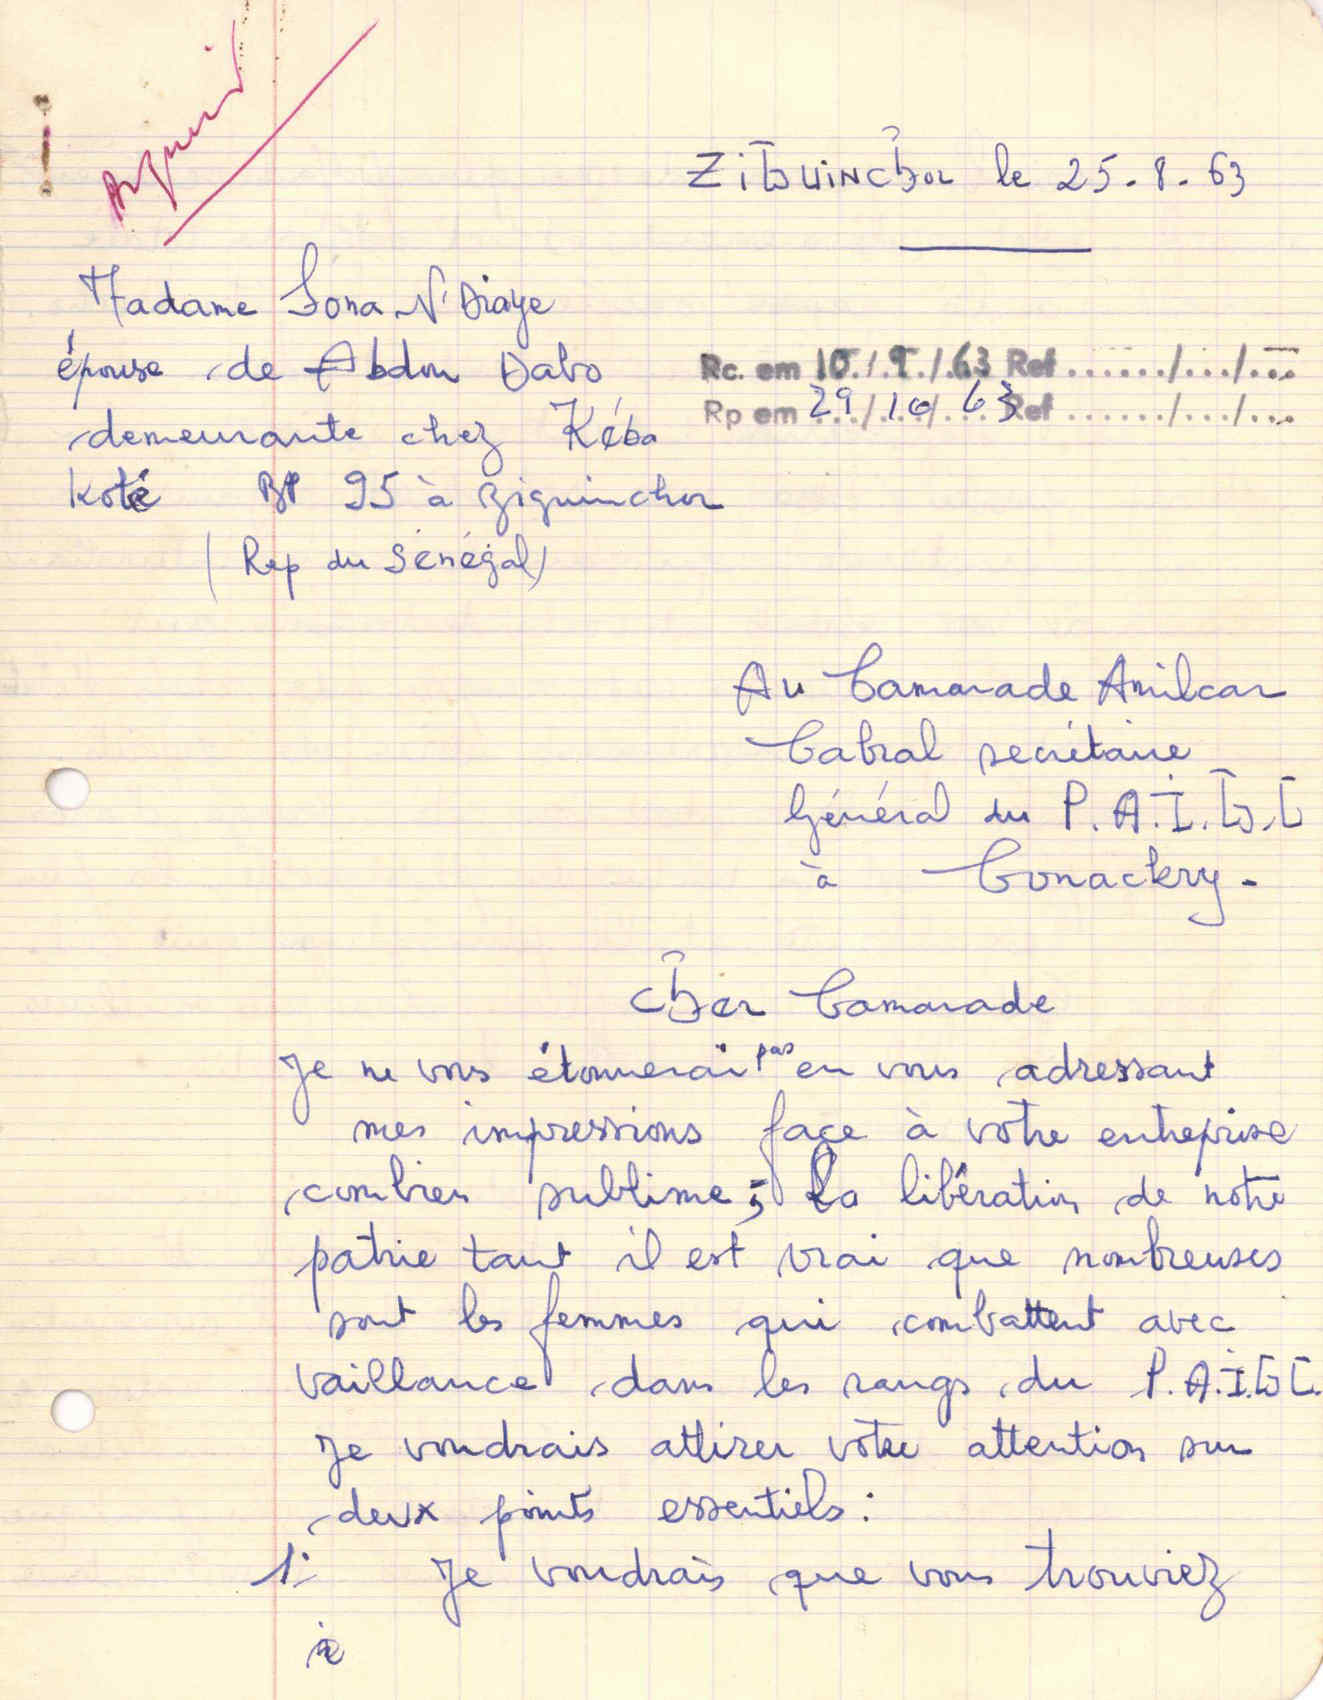 Ziguinchor le 25.8.63
Madame Sona N'Diaye
épouse de Abdou Dabo
Rc. em 10./.9./.63 Ref ....../.../...
demeurante chez Kéba
Rp em 29/10/63 Ref ....../.../...
Koté BP 95 à Ziguinchor
(Rep du Sénégal)
Au Camarade Amilcar
Cabral secrétaire
Général du P.A.I.G.C
à Conackry-
Cher Camarade
Je ne vous étonnerai pas en vous adressant
mes impressions face à votre entreprise
combien sublime; La libération de notre
patrie tant il est vrai que nombreuses
sont les femmes qui combattent avec
vaillance dans les rangs du P.A.I.G C.
Je voudrais attirer votre attention sur
deux points essentiels:
1: Je voudrais que vous trouviez